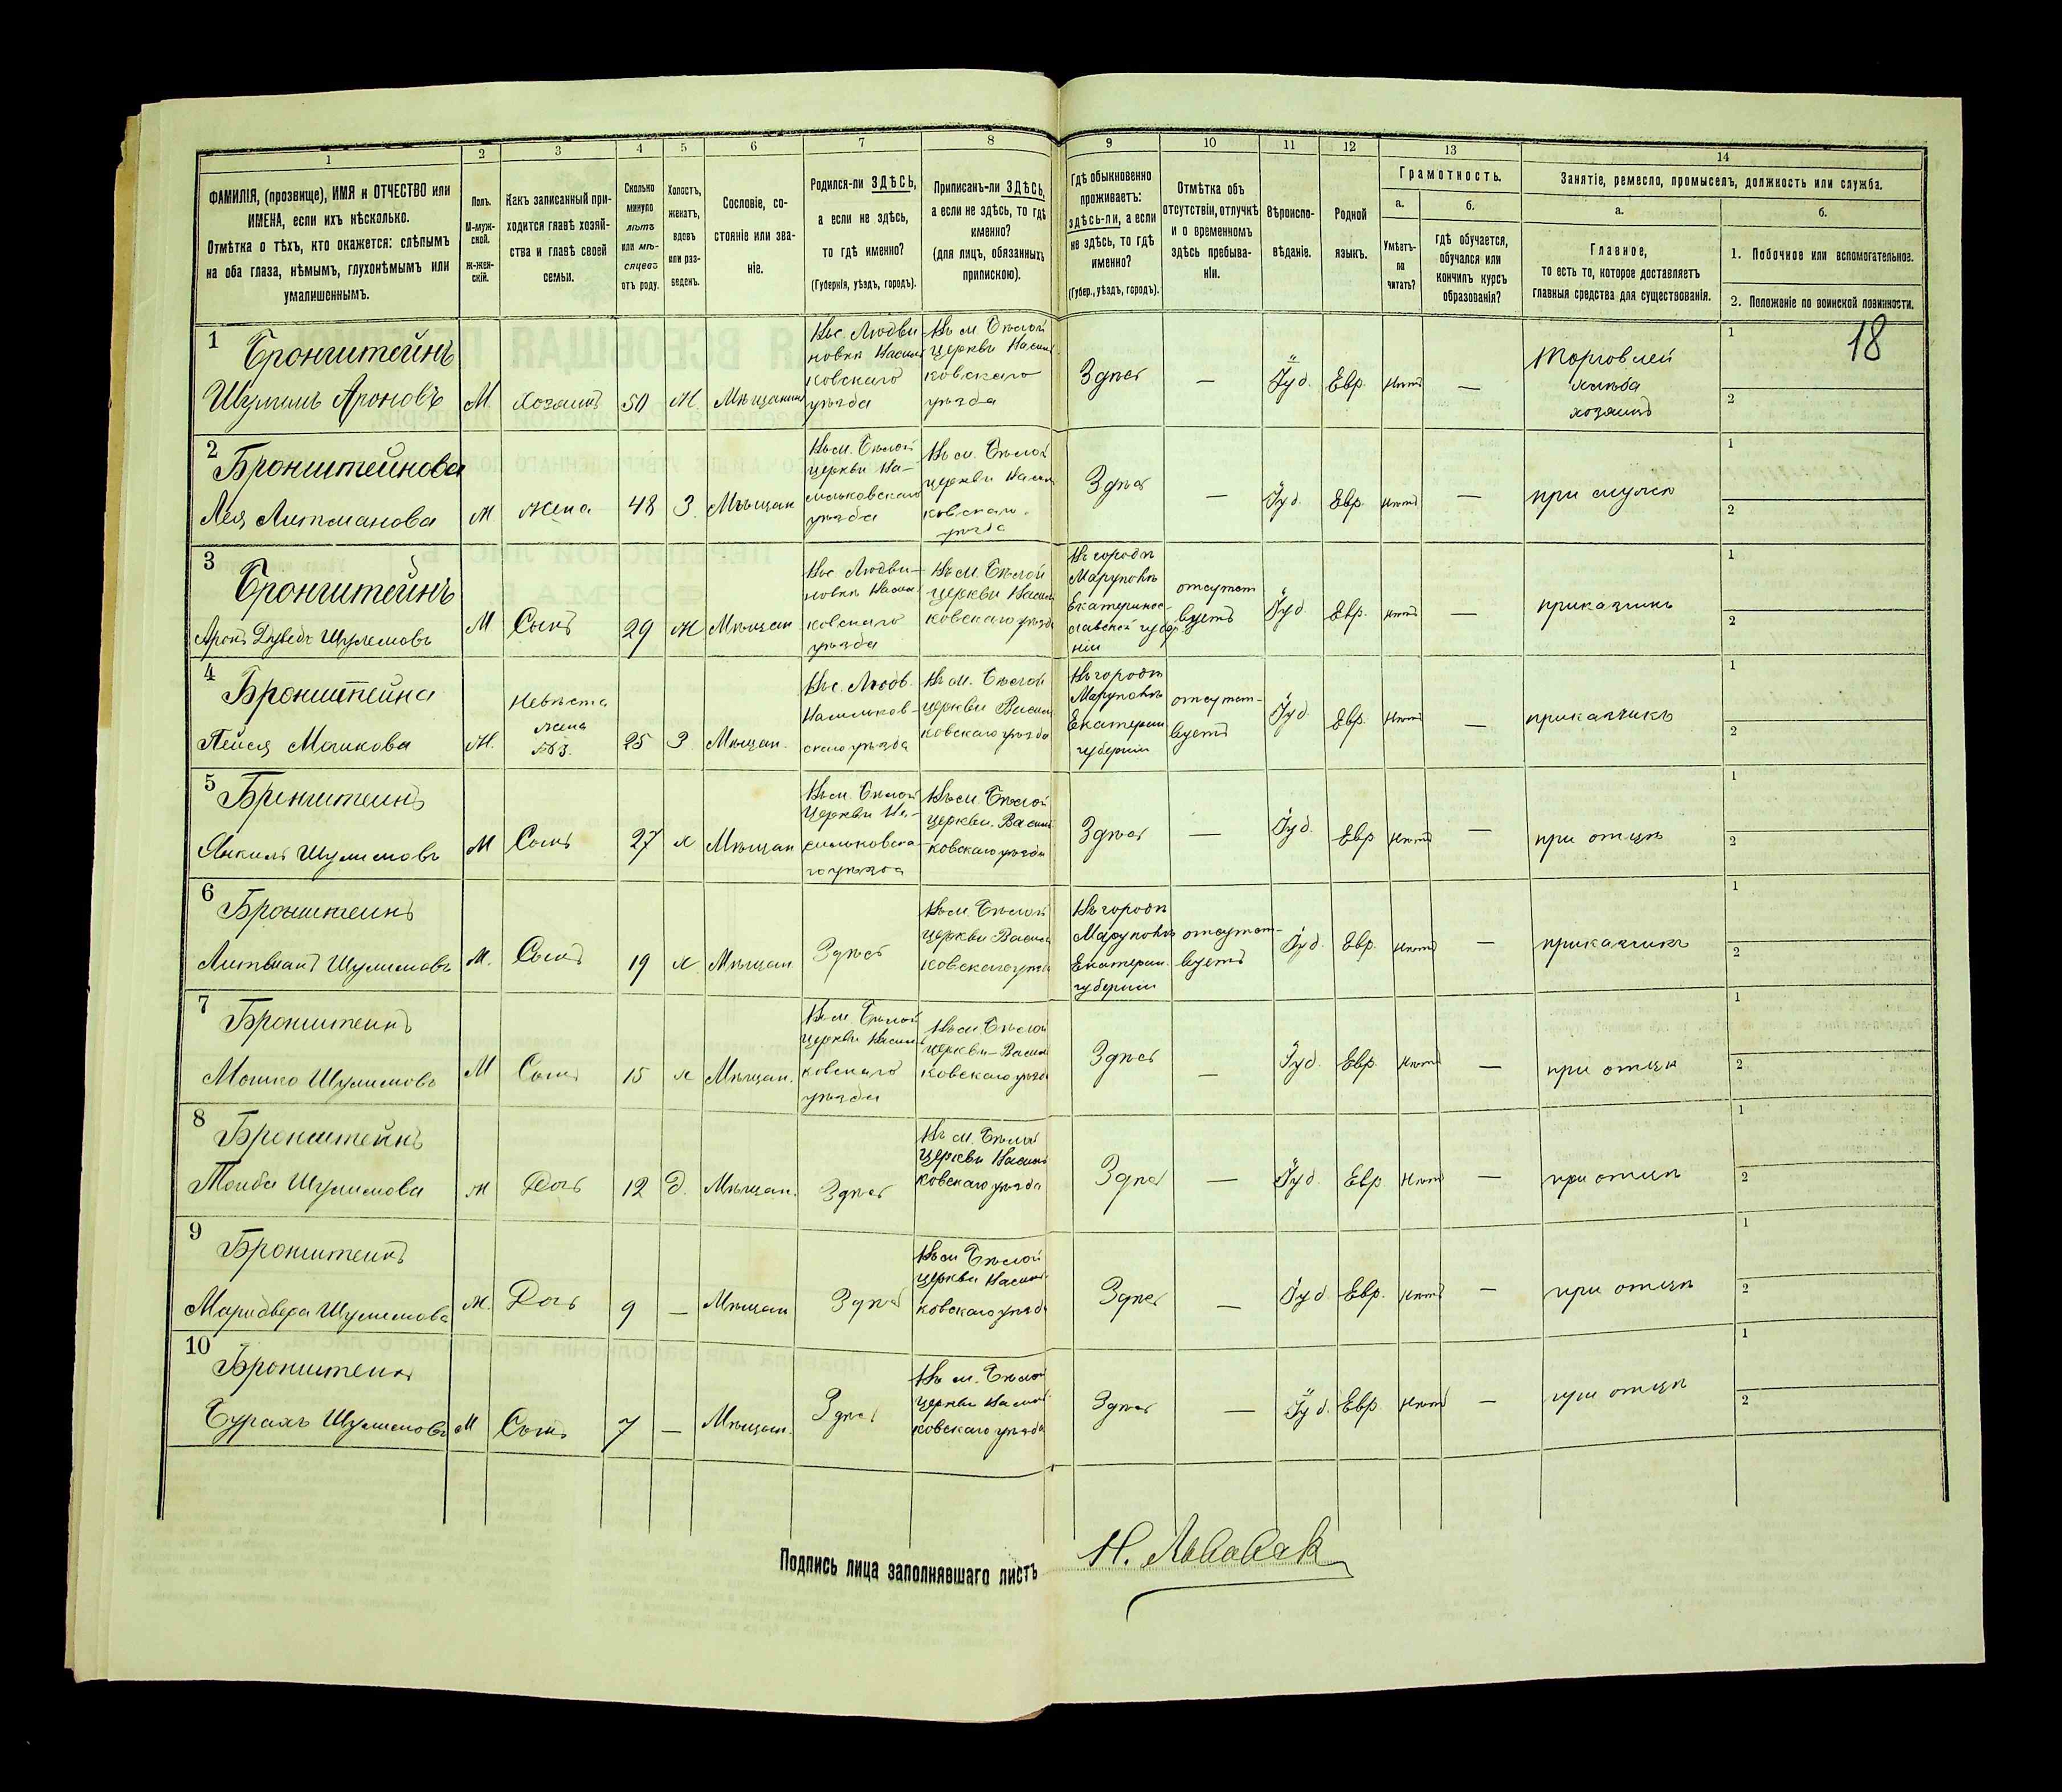 1
2
3
4
5
6
7
8
9
10
11
12
13
14
ФАМИЛІЯ, (прозвище), ИМЯ и ОТЧЕСТВО или
ИМЕНА, если ихъ нѣсколько.
Отмѣтка о тѣхъ, кто окажется: слѣпымъ
на оба глаза, нѣмымъ, глухонѣмымъ или
умалишеннымъ.
Полъ.
М-муж-
ской.
ж-жен-
скій.
Какъ записанный при-
ходится главѣ хозяй-
ства и главѣ своей
семьи.
Сколько
минуло
лѣтъ
или мѣ-
сяцевъ
отъ роду.
Холостъ,
женатъ,
вдовъ
или раз-
веденъ.
Сословіе, со-
стояніе или зва-
ніе.
Родился-ли ЗДѢСЬ,
а если не здѣсь,
то гдѣ именно?
(Губернія, уѣздъ, городъ).
Приписанъ-ли ЗДѢСЬ,
а если не здѣсь, то гдѣ
именно?
(для лицъ, обязанныхъ
припискою).
Гдѣ обыкновенно
проживаетъ:
здѣсь-ли, а если
не здѣсь, то гдѣ
именно?
(Губер., уѣздъ, городъ).
Отмѣтка объ
отсутствіи, отлучкѣ
и о временномъ
здѣсь пребыва-
ніи.
Вѣроиспо-
вѣданіе.
Родной
языкъ.
Грамотность.
а.
Умѣетъ-
ли
читать?
б.
гдѣ обучается,
обучался или
кончилъ курсъ
образованія?
Занятіе, ремесло, промыселъ, должность или служба.
а.
Главное,
то есть то, которое доставляетъ
главныя средства для существованія.
б.
1. Побочное или вспомогательное.
2. Положеніе по воинской повинности.
18
1
Бронштейнъ
Шулимъ Ароновъ
М.
Хозяинъ
50
Ж
Мѣщанинъ
Въ с. Людви-
новкѣ Василь
ковскаго
уѣзда
Въ м. Бѣлой
церкви Василь
ковскаго
уѣзда
Здѣсь
—
Іуд.
Евр.
Нѣтъ
—
Торговлей
хлѣба
хозяинъ
1
2
2
Бронштейнова
Лея Литманова
Ж
жена
48
З.
Мѣщан
Въ м. Бѣлой
церкви Ва-
сильковскаго
уѣзда
Въ м. Бѣлой
церкви Василь
ковскаго
уѣзда
Здѣсь
—
Іуд.
Евр.
Нѣтъ
—
при мужѣ
1
2
3
Бронштейнъ
Аронъ Дуведъ Шулемовъ
М.
Сынъ
29
Ж
Мѣщан
Въ с. Людви-
новкѣ Василь
ковскаго
уѣзда
Въ м. Бѣлой
церкви Василь
ковскаго уѣзда
Въ городѣ
Маруполѣ
Екатеринос-
лавской губер
ніи
отсутст
вуетъ
Іуд
Евр.
Нѣтъ
—
приказчикъ
1
2
4
Бронштейна
Пейся Мошкова
Ж.
Невѣста
жена
№3.
25
З.
Мѣщан.
Въ с. Людв.
Васильков-
скаго уѣзда
Въ м. Бѣлой
церкви Василь
ковскаго уѣзда
Въ городѣ
Маруполѣ
Екатерин
губерніи
отсутст-
вуетъ
Іуд.
Евр.
Нѣтъ
—
приказчикъ
1
2
5
Бронштейнъ
Янкиль Шулимовъ
М
Сынъ
27
х
Мѣщан
Въ м. Бѣлой
Церкви Ва-
сильковска-
го уѣзда
Въ м. Бѣлой
церкви. Василь
ковскаго уѣзда
Здѣсь
—
Іуд.
Евр
Нѣтъ
—
при отцѣ
1
2
6
Бронштейнъ
Литманъ Шулимовъ
М.
Сынъ
19
х
Мѣщан
Здѣсь
Въ м. Бѣлой
церкви Василь
ковскаго уѣзда
Въ городѣ
Маруполѣ
Екатерин.
губерніи
отсутст-
вуетъ
Іуд.
Евр.
Нѣтъ
—
приказчикъ
1
2
7
Бронштейнъ
Мошко Шулимовъ
М
Сынъ
15
х
Мѣщан.
Въ м. Бѣлой
церкви Василь
ковскаго
уѣзда
Въ м. Бѣлой
церкви-Василь
ковскаго уѣзда
Здѣсь
—
Іуд.
Евр.
Нѣтъ
—
при отцѣ
1
2
8
Бронштейнъ
Тойба Шулимова
Ж
Дочь
12
д.
Мѣщан.
Здѣсь
Въ м. Бѣлой
церкви Василь
ковскаго уѣзда
Здѣсь
—
Іуд.
Евр.
Нѣтъ
—
при отцѣ
1
2
9
Бронштейнъ
Шулимова
Ж.
Дочь
9
—
Мѣщан
Здѣсь
Въ м Бѣлой
церкви Василь
ковскаго уѣзда
Здѣсь
—
Іуд
Евр.
Нѣтъ
—
при отцѣ
1
2
10
Бронштейнъ
Шулимовъ
М
Сынъ
7
—
Мѣщан.
Здѣсь
Въ м. Бѣлой
церкви Василь
ковскаго уѣзда
Здѣсь
—
Іуд.
Евр
Нѣтъ
—
при отцѣ
1
2
Подпись лица заполнявшаго листъ